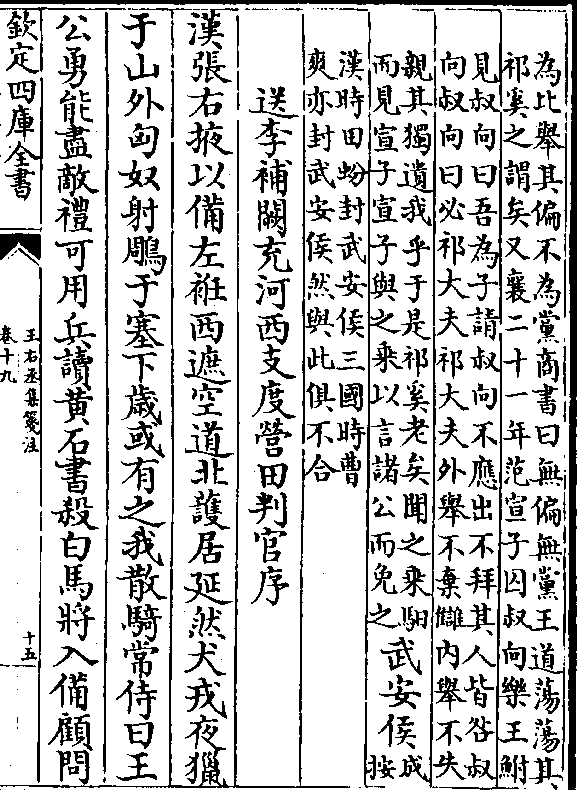 為比舉其偏不為黨商書曰無偏無黨王道蕩蕩其
祁奚之謂矣又襄二十一年范宣子囚叔向樂王鮒
見叔向曰吾為子請叔向不應出不拜其人皆咎叔
向叔向曰必祁大夫祁大夫外舉不棄讎內舉不失
親其獨遺我乎于是祁奚老矣聞之乘馹
而見宣子宣子與之乘以言諸公而免之
武安侯
成
按
漢時田蚡封武安侯三國時曹
爽亦封武安侯然與此俱不合
送李補闕充河西支度營田判官序
漢張右掖以備左衽西遮空道北護居延然犬戎夜獵
于山外匈奴射鵰于塞下歲或有之我散騎常侍曰王
公勇能盡敵禮可用兵讀黃石書殺白馬將入備顧問
欽定四庫全書
王右丞集箋注
卷十九
十五